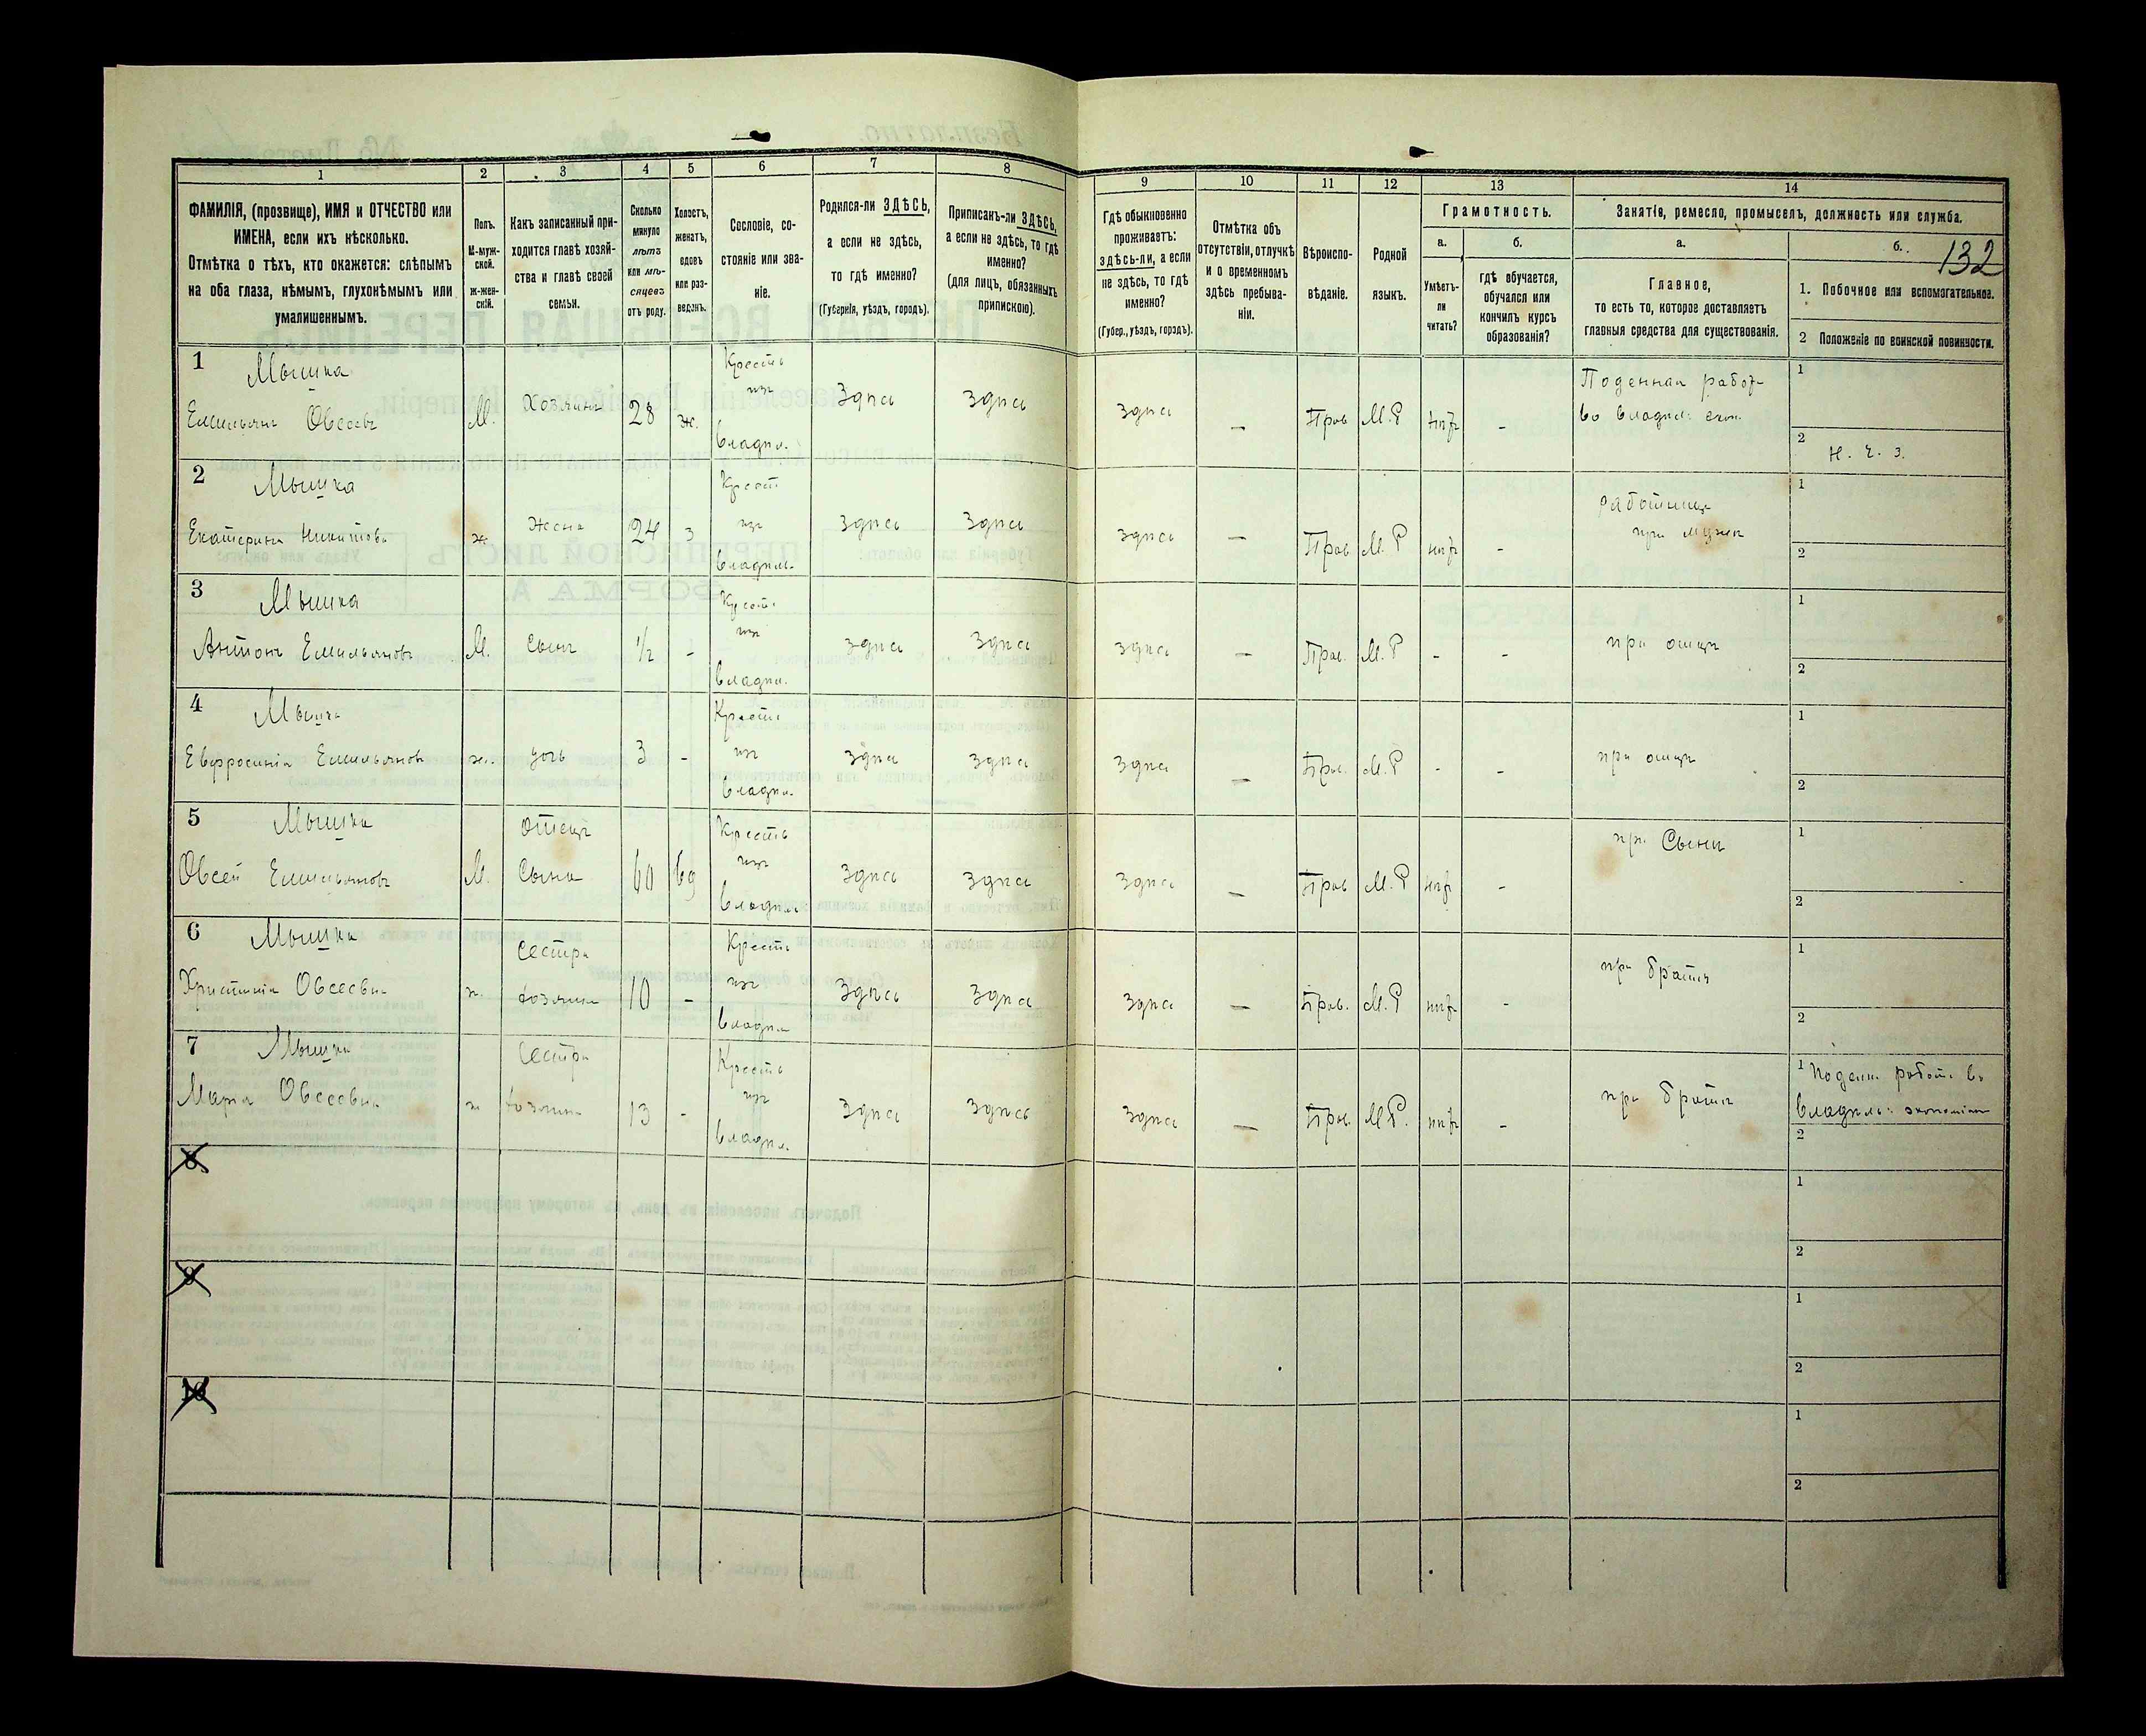 1
2
3
4
5
6
7
8
9
10
11
12
13
14
ФАМИЛІЯ, (прозвище), ИМЯ и ОТЧЕСТВО или
ИМЕНА, если ихъ нѣсколько.
Отмѣтка о тѣхъ, кто окажется: слѣпымъ
на оба глаза, нѣмымъ, глухонѣмымъ или
умалишеннымъ.
Полъ.
М-муж-
ской.
Ж-жен-
скій.
Какъ записанный при-
ходится главѣ хозяй-
ства и главѣ своей
семьи.
Сколько
минуло
лѣтъ
или мѣ-
сяцевъ
отъ роду.
Холостъ,
женатъ,
вдовъ
или раз-
веденъ.
Сословіе, со-
стояніе или зва-
ніе.
Родился-ли ЗДѢСЬ,
а если не здѣсь,
то гдѣ именно?
(Губернія, уѣздъ, городъ).
Приписанъ-ли ЗДѢСЬ,
а если не здѣсь, то гдѣ
именно?
(для лицъ, обязанныхъ
припискою).
Гдѣ обыкновенно
проживаетъ:
здѣсь-ли, а если
не здѣсь, то гдѣ
именно?
(Губер., уѣздъ, городъ).
Отмѣтка объ
отсутствіи, отлучкѣ
и о временномъ
здѣсь пребыва-
ніи.
Вѣроиспо-
вѣданіе.
Родной
языкъ.
Грамотность.
а.
Умѣетъ-
ли
читать?
б.
гдѣ обучается,
обучался или
кончилъ курсъ
образованія?
Занятіе, ремесло, промыселъ, должность или служба.
а.
Главное,
то есть то, которое доставляетъ
главныя средства для существованія.
б.
132
1. Побочное или вспомогательное.
2 Положеніе по воинской повинности.
1 Мышка
Емельянъ Овсеевъ
М.
Хозяинъ
28
ж.
Крестъ
изъ
владѣл.
Здѣсь
Здѣсь
Здѣсь
—
Прав
М.Р
нѣт
-
Поденная работ
во владѣл. экон.
1
2 Н. Ч. З.
2 Мышка
Екатерина Никитова
ж
Жена
24
з
Крест
изъ
владѣль.
Здѣсь
Здѣсь
Здѣсь
—
Прав
М.Р
нѣт
-
работница
при мужѣ
1
2
3 Мышка
Антонъ Емельяновъ
М.
Сынъ
1/2
-
Крест.
изъ
владѣл.
Здѣсь
Здѣсь
Здѣсь
—
Прав.
М.Р
-
-
при отцѣ
1
2
4 Мышка
Евфросинія Емельянов
ж.
дочь
3
-
Крест.
изъ
владѣл.
Здѣсь
Здѣсь
Здѣсь
—
Прав.
М.Р
-
-
при отцѣ
1
2
5 Мышка
Овсей Емельяновъ
М.
Отецъ
Сына
60
вд
Крестъ
изъ
владѣл
Здѣсь
Здѣсь
Здѣсь
—
Прав
М.Р
нѣт
-
при Сынѣ
1
2
6 Мышка
Христинія Овсеевна
ж.
Сестра
хозяина
10
-
Крестъ
изъ
владѣл
Здѣсь
Здѣсь
Здѣсь
—
Прав.
М.Р
нѣт
-
при братѣ
1
2
7 Мышка
Марія Овсеевна
ж
Сестра
хозяина
13
-
Крестъ
изъ
владѣл.
Здѣсь
Здѣсь
Здѣсь
—
Прав.
М.Р.
нѣт
-
при братѣ
1 Поденн. работ. во
владѣль. экономіи
2
8
1
2
9
1
2
10
1
2